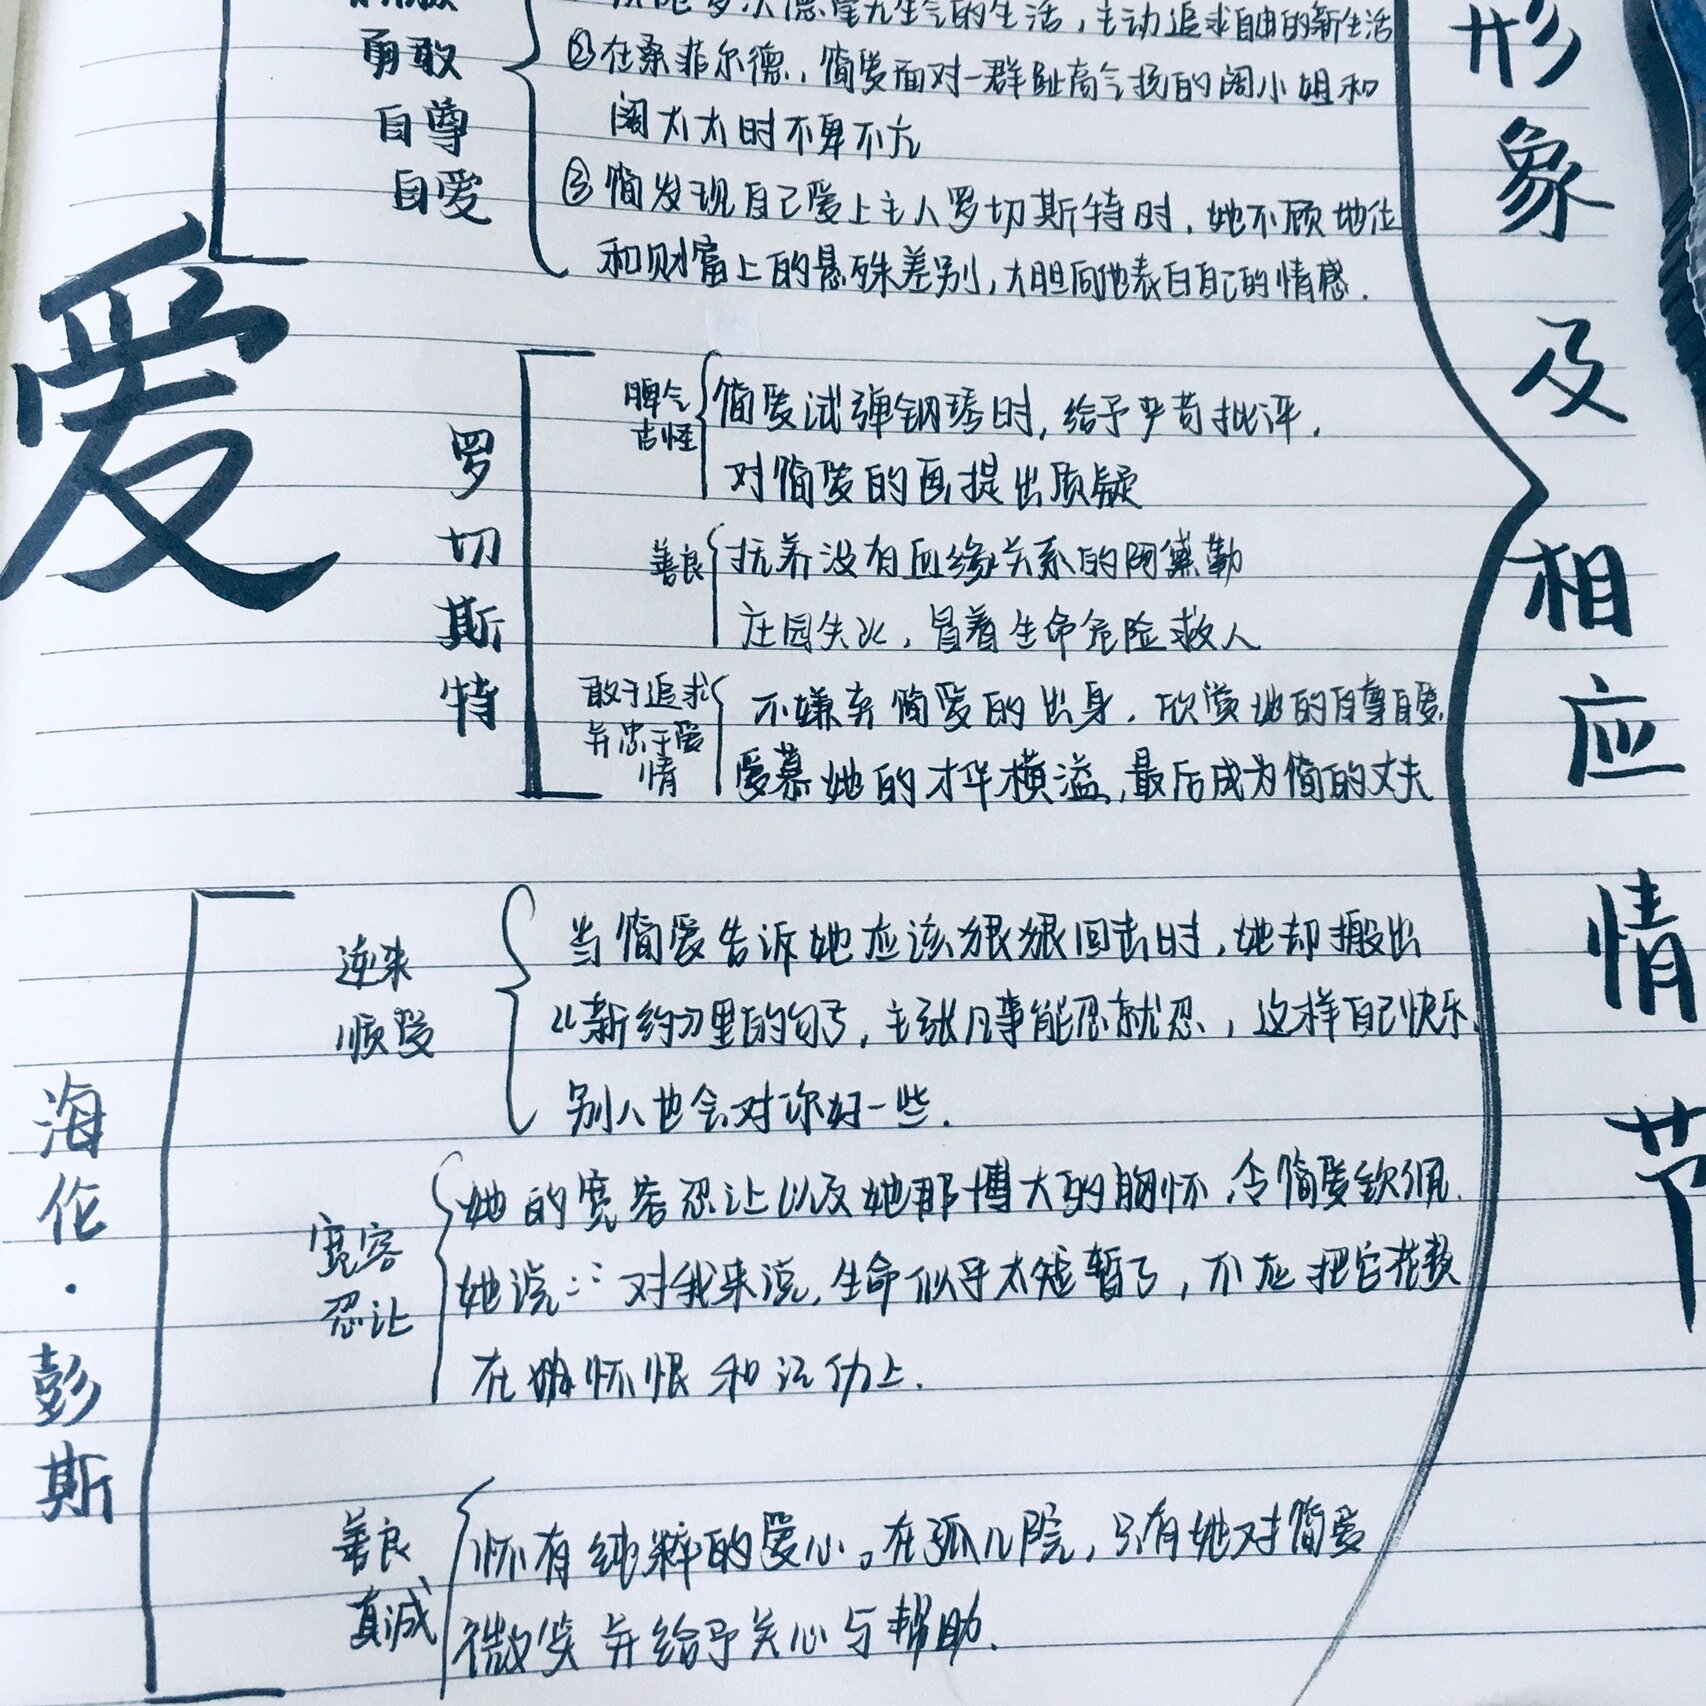 多次德毫无生气的生活，主动追求自由的新生活
勇敢
②在桑菲尔德，简爱面对一群趾高气扬的阔小姐和
自尊
阔太太时不卑不亢
自爱
③简发现自己爱上主人罗切斯特时，她不顾地位
和财富上的悬殊差别，大胆向他表白自己的情感．
爱
罗切斯特
脾气
古怪
简爱试弹钢琴时，给予严苛批评．
对简爱的画提出质疑
善良
抚养没有血缘关系的阿黛勒
庄园失火，冒着生命危险救人
敢于追求
并忠于爱
情
不嫌弃简爱的出身．欣赏她的自尊自爱
爱慕她的才华横溢，最后成为简的丈夫
海伦·彭斯
逆来
顺受
当简爱告诉她应该狠狠回击时，她却搬出
《新约》里的句子，主张凡事能忍就忍，这样自己快乐，
别人也会对你好一些．
宽容
忍让
她的宽容忍让以及她那博大的胸怀，令简爱钦佩．
她说：：对我来说，生命似乎太短暂了，不应把它花费
在怀恨和记仇上．
善良
真诚
怀有纯粹的爱心。在孤儿院，只有她对简爱
微笑并给予关心与帮助．
形象及相应情节